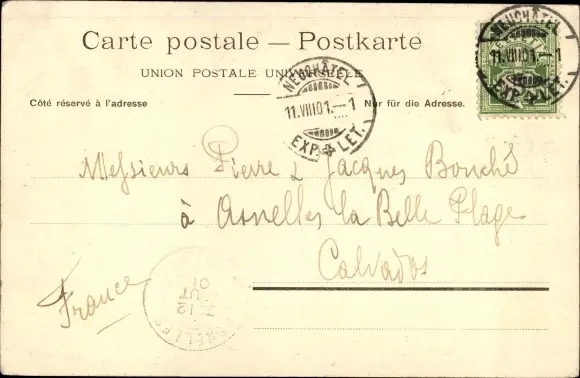 Carte postale — Postkarte
UNION POSTALE UNIVERSELLE
Côté réservé à l'adresse
Nur für die Adresse.
NEUCHÂTEL
11.VIII.01.—1
EXP. LET.
NEUCHÂTEL
11.VIII.01.—1
EXP. LET.
Messieurs Pierre & Jacques Bouché
à Asnelles la Belle Plage
Calvados
France
12
OUT
01